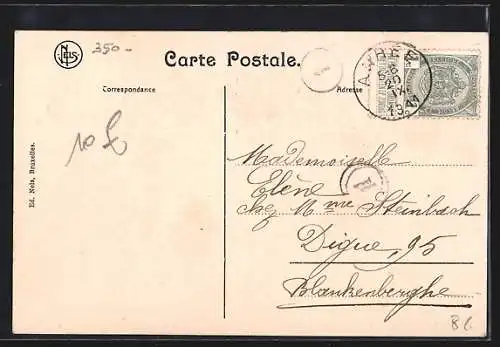 NELS
350-
Carte Postale.
Correspondance
Adresse
10 £
Mademoiselle
Elène
chez Mme Steinbach
Digue, 95
Blankenberghe
Ed. Nels, Bruxelles.